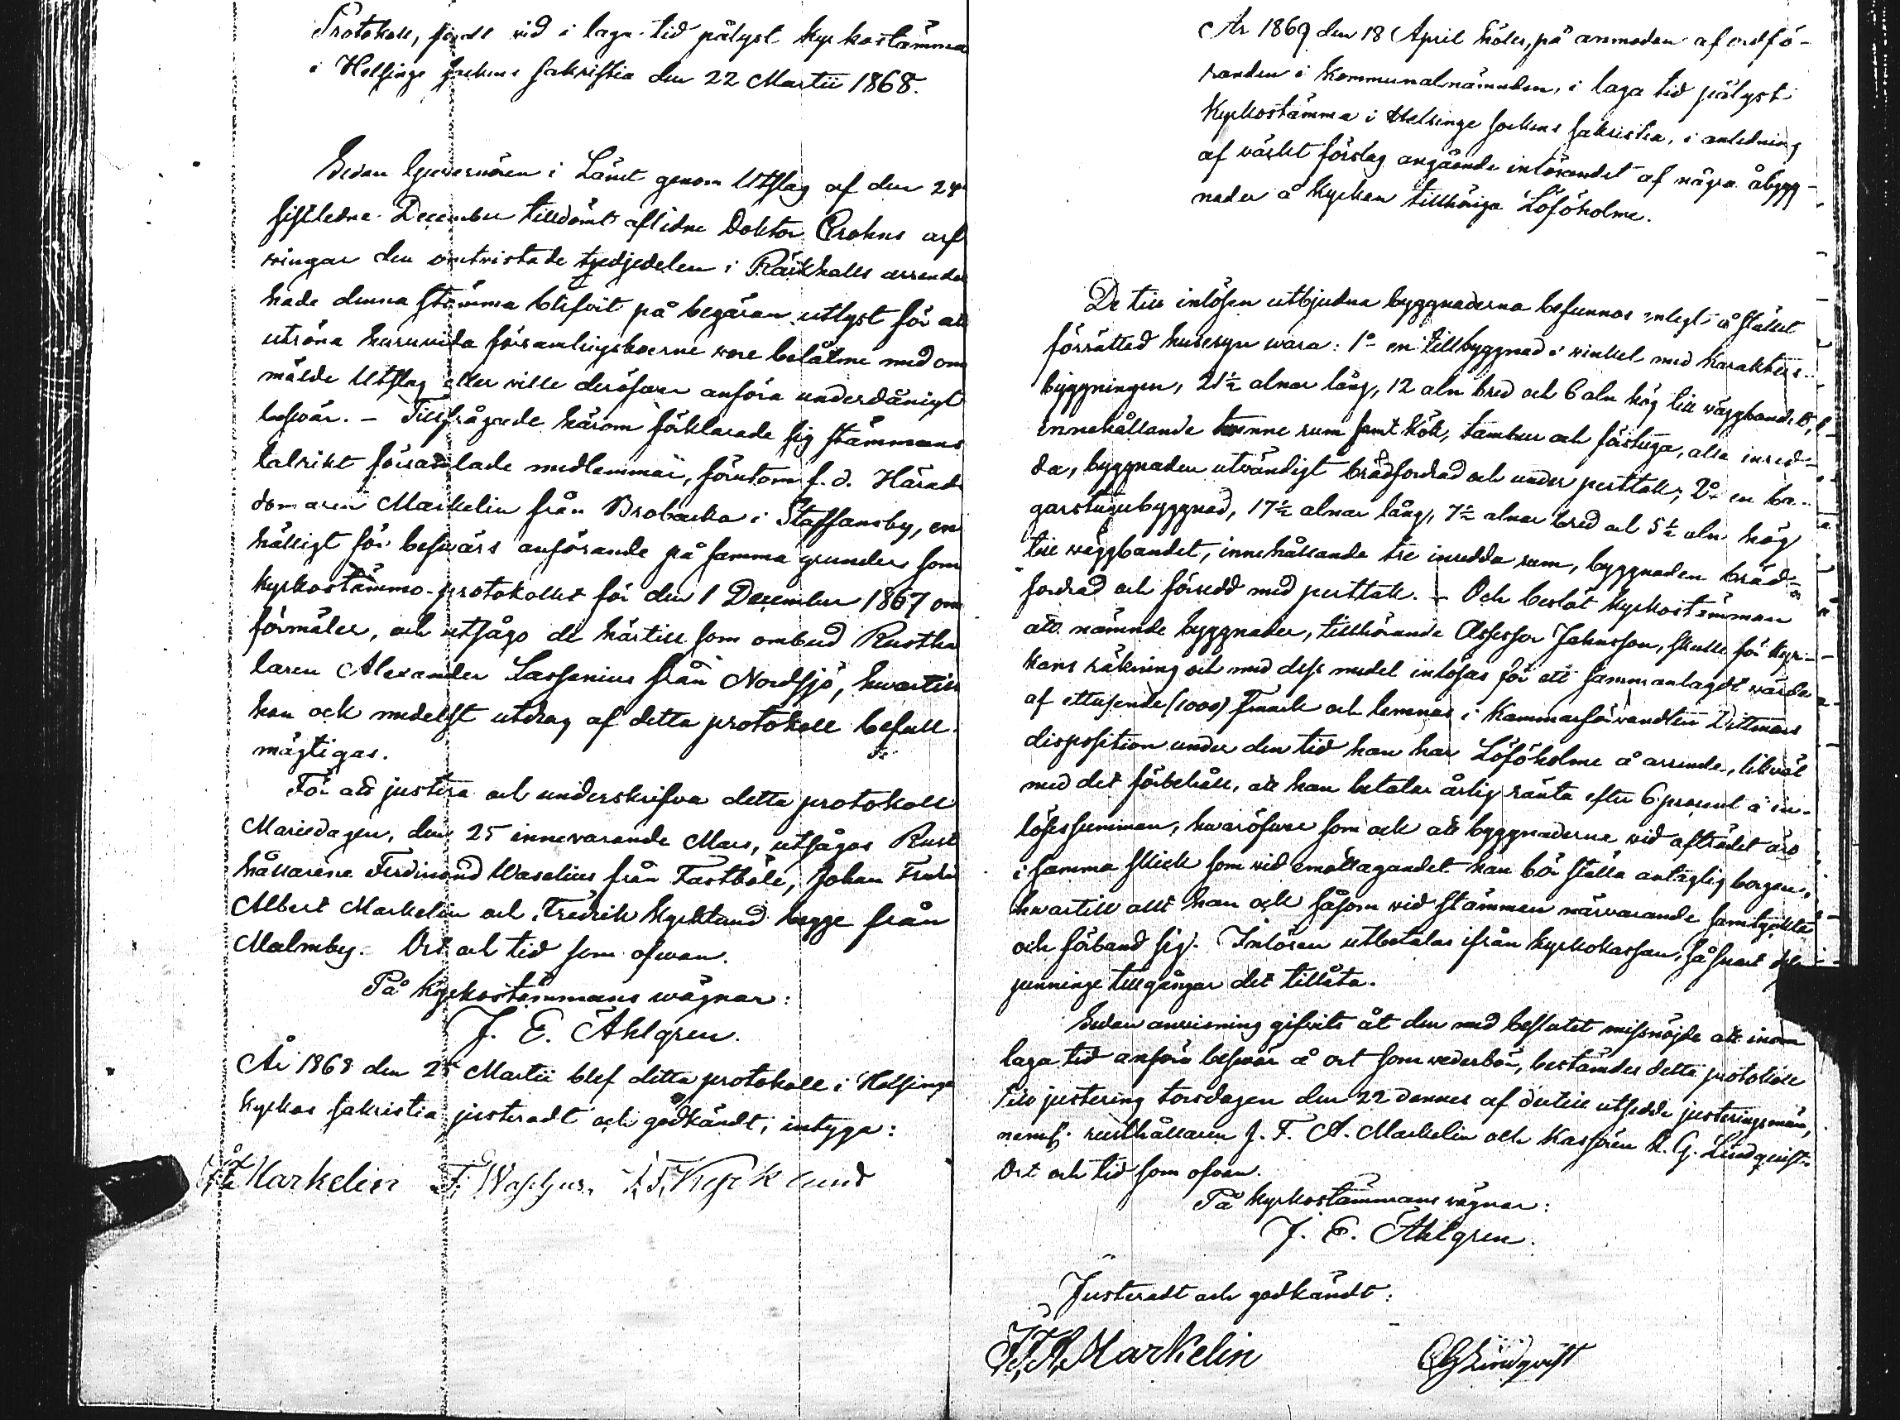 Protokoll, fördt vid i laga tid pålyst kyrkostämma
i Helsinge sockens sakristia den 22 Martii 1868.
Sedan Guvernören i Länet genom Utslag af den 24
sistledne December tilldömt aflidne Doktor Crohns arf
vingar den omtvistade tredjedelen i Räckhalls arrende
hade denna stämma blifvit på begäran utlyst för att
utröna huruvida församlingsboerne vore belåtne med om
mälde Utslag eller ville deröfver anföra underdånigt
besvär. – Tillfrågade härom förklarade sig stämmans
talrikt församlade medlemmar, förutom f. d. Härads
domaren Markelin från Brobacka i Staffansby, en
hälligt för besvärs anförande på samma grunder som
kyrkostämmo-protokollet för den 1 December 1867 om
förmäler, och utsågo de härtill som ombud Rusthå
laren Alexander Lassenius från Nordsjö, hvartill
han ock medelst utdrag af detta protokoll befull
mägtigas.
För att justera och underskrifva detta protokoll
Mariedagen, den 25 innevarande Mars, utsågos Rust
hållarene Ferdinand Waselius från Fastböle, Johan Fredr
Albert Markelin och Fredrik Kycklund begge från
Malmby. Ort och tid som ofvan.
På Kyrkostämmans vägnar:
J. E. Ahlgren.
År 1868 den 25 Martii blef detta protokoll i Helsinge
kyrkas sakristia justeradt och godkändt; intyga:
Markelin F. Waselius. F. Kycklund
År 1869 den 18 April hölls, på anmodan af ordfö-
randen i Kommunalnämnden, i laga tid pålyst
Kyrkostämma i Helsinge sockens sakristia, i anledning
af väckt förslag angående inlösandet af några åbygg-
nader å Kyrkan tillhöriga Löföholme.
De till inlösen utbjudna byggnaderna befunnos enligt å stället
förrättad husesyn vara: 1o en tillbyggnad i vinkel med Karakters-
byggningen, 21½ alnar lång, 12 aln bred och 6 aln hög till väggbandet,
innehållande tvenne rum samt kök, tambur och förstuga, alla inred-
da, byggnaden utvändigt brädfordrad och under perttak; 2o en ba-
garstugubyggnad, 17½ alnar lång, 7½ alnar bred och 5½ aln hög
till väggbandet, innehållande tre inredda rum, byggnaden bräd-
fordrad och försedd med perttak. – Och beslöt kyrkostämman
att nämnde byggnader, tillhörande Assessor Johnsson, skulle för kyr-
kans räkning och med dess medel inlösas för ett sammanlagdt värde
af ettusende (1000) Fmark och lemnas i Kammarförvandten Dittmars
disposition under den tid han har Löföholme å arrende, likväl
med det förbehåll, att han betalar årlig ränta efter 6 procent å in-
lösessumman, hvaröfver som ock att byggnaderna vid afträdet äro
i samma skick som vid emottagandet han bör ställa antaglig borgen,
hvartill allt han ock såsom vid stämman närvarande samtyckte
och förband sig. Inlösen utbetalas ifrån kyrkokassan, så snart dess
penninge tillgångar det tillåta.
Sedan anvisning gifvits åt den med beslutet missnöjde att inom
laga tid anföra besvär å ort som vederbör, bestämdes detta protokoll
till justering torsdagen den 22 dennes af dertill utsedde justeringsmän,
neml. rusthållaren J. F. A. Markelin och Kassören K. G. Lindqvist.
Ort och tid som ofvan.
På kyrkostämmans vägnar:
J. E. Ahlgren.
Justeradt och godkändt:
J. F. A. Markelin
CGLindqvist